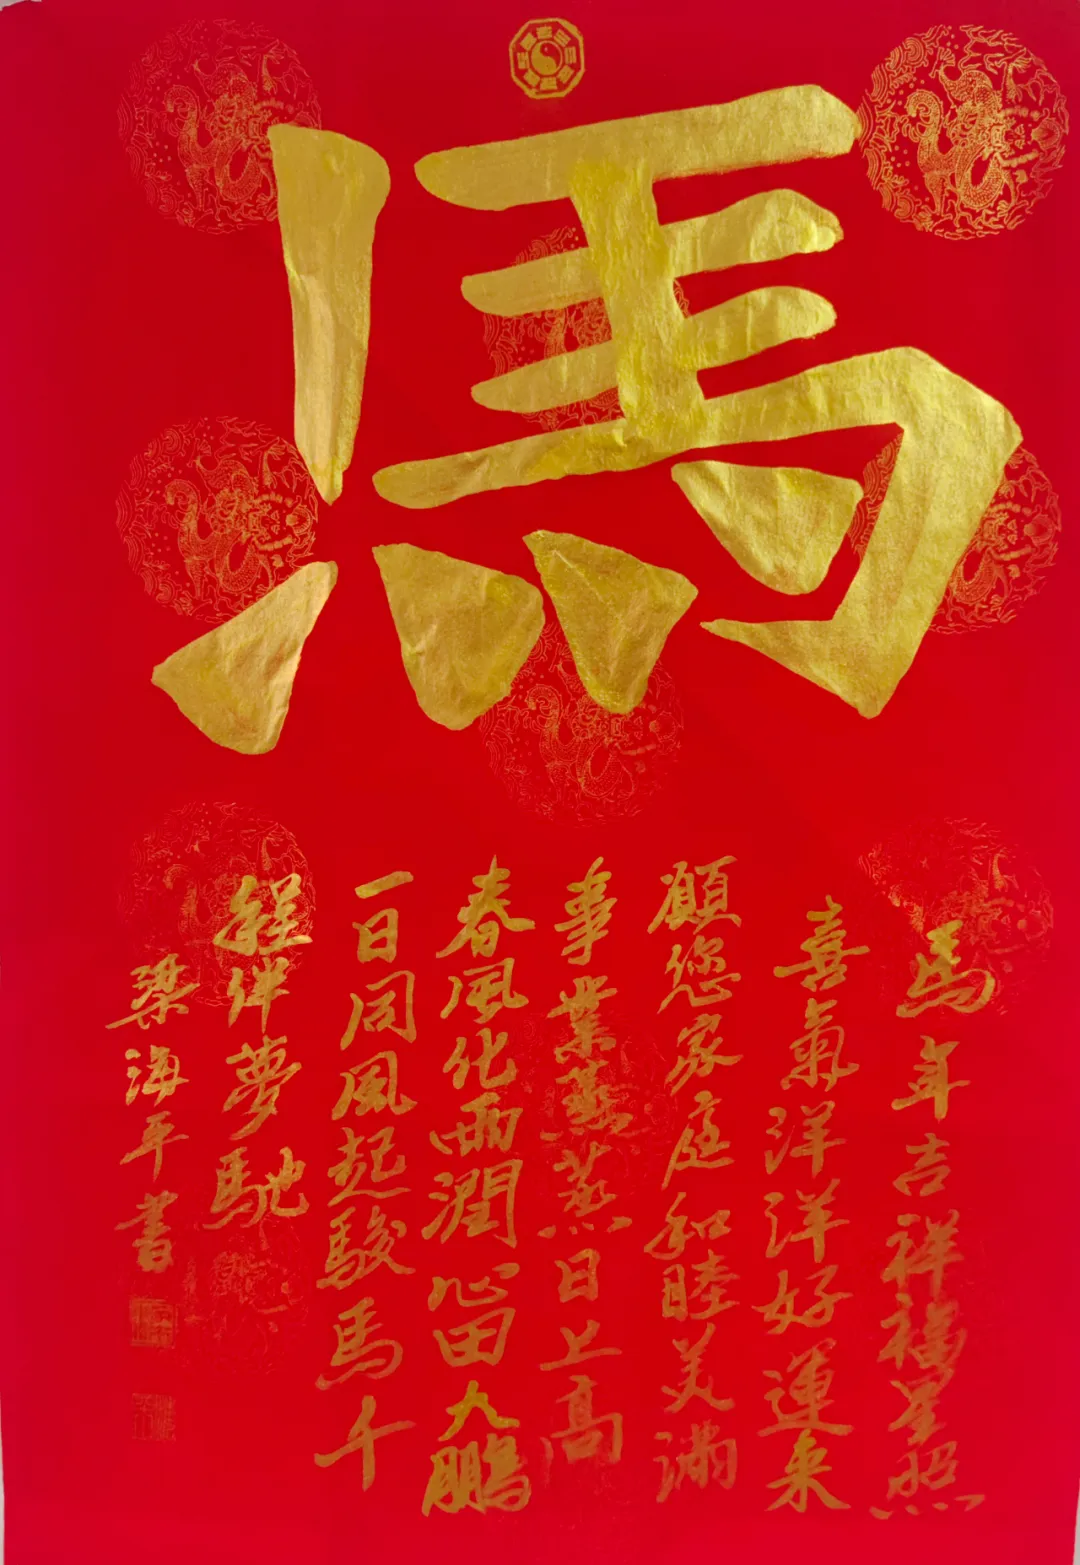 馬
馬年吉祥福星照
喜氣洋洋好運来
願您家庭和睦美滿
事業蒸蒸日上高
春風化雨潤心田大鵬
一日同風起駿馬千
程伴夢馳
梁海平書